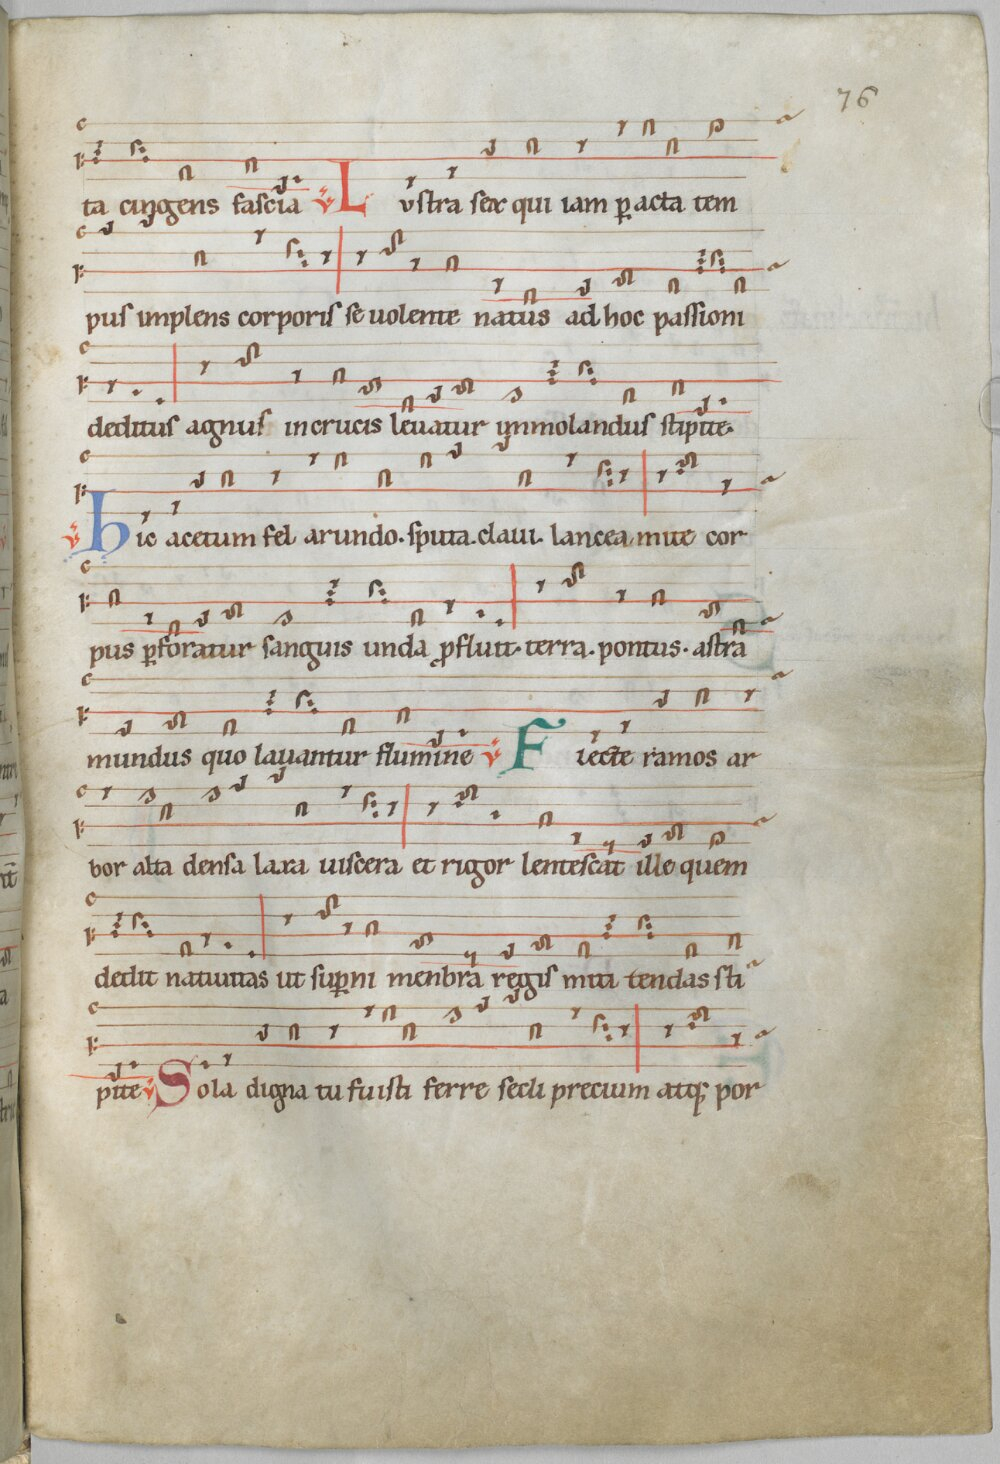 76
ta cingens fascia V Lustra sex qui iam peracta tem
pus implens corporis se uolente natus ad hoc passioni
deditus agnus in crucis leuatur immolandus stipite.
V hic acetum fel arundo. sputa. claui. lancea mite cor
pus perforatur sanguis unda profluit. terra. pontus. astra
mundus quo lauantur flumine V Flecte ramos ar
bor alta densa laxa uiscera et rigor lentescat ille quem
dedit natiuitas ut superni menbra regis miti tendas sti
pite V Sola digna tu fuisti ferre secli precium atq; por